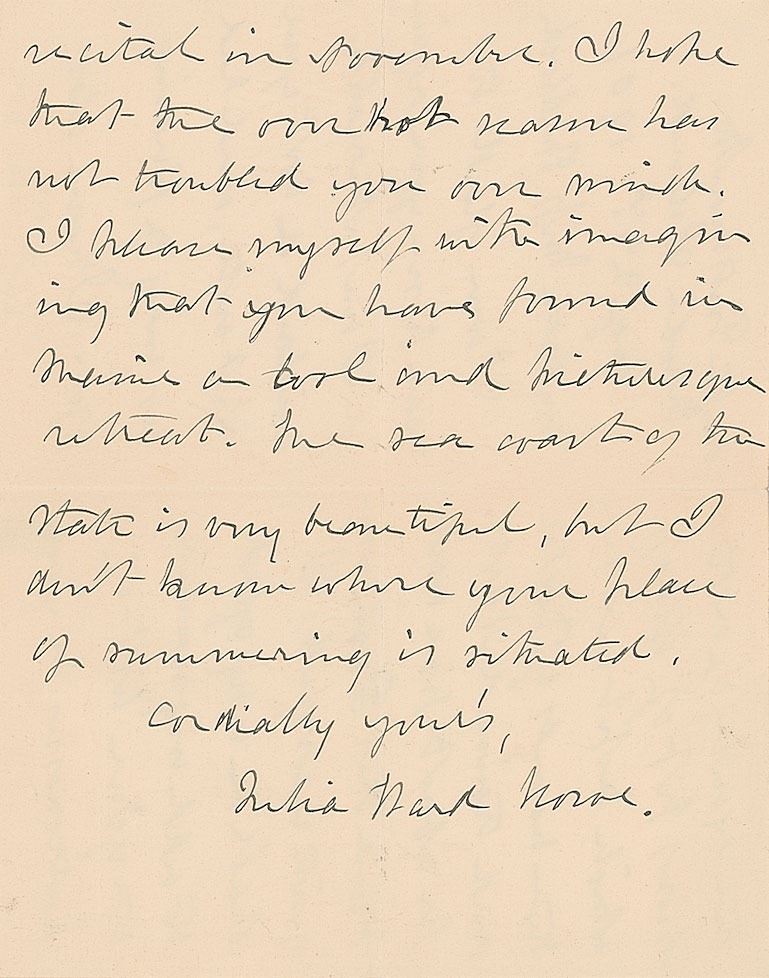 recital in November. I hope
that the over hot season has
not troubled you over much.
I please myself with imagin
ing that you have found in
Maine a cool and picturesque
retreat. The sea coast of the
State is very beautiful, but I
don't know where your place
of summering is situated.
Cordially your's,
Julia Ward Howe.